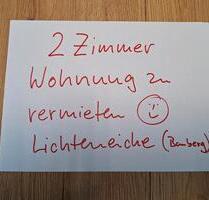 2 Zimmer
Wohnung zu
vermieten
Lichteneiche (Bamberg)